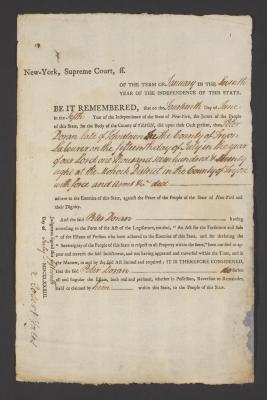 New-York, Supreme Court, ss.
OF THE TERM OF January IN THE Seventh
YEAR OF THE INDEPENDENCE OF THIS STATE.
BE IT REMEMBERED, that on the fourteenth Day of June
in the Fifth Year of the Independence of the State of New-York, the Jurors of the People
of this State, for the Body of the County of TRYON, did upon their Oath present, that Peter
Doran late of Johnstown in the County of Tryon
Labourer on the fifteenth day of July in the year
of our Lord one thousand seven hundred & seventy
eight at the Mohawk District in the County of Tryon
with force and arms &c did
adhere to the Enemies of this State, against the Peace of the People of the State of New-York and
their Dignity.
And the said Peter Doran having
according to the Form of the Act of the Legislature, entitled, "An Act for the Forfeiture and Sale
"of the Estates of Persons who have adhered to the Enemies of this State, and for declaring the
"Sovereignty of the People of this State in respect to all Property within the same," been notified to ap-
pear and traverse the said Indictment, and not having appeared and traversed within the Time, and in
the Manner, in and by the said Act limited and required; IT IS THEREFORE CONSIDERED,
that the said Peter Doran do forfeit
all and singular the Estate, both real and personal, whether in Possession, Reversion or Remainder,
held or claimed by him within this State, to the People of this State.
Judgment signed this
Day of July MDCCLXXXIII.
Robert Yates